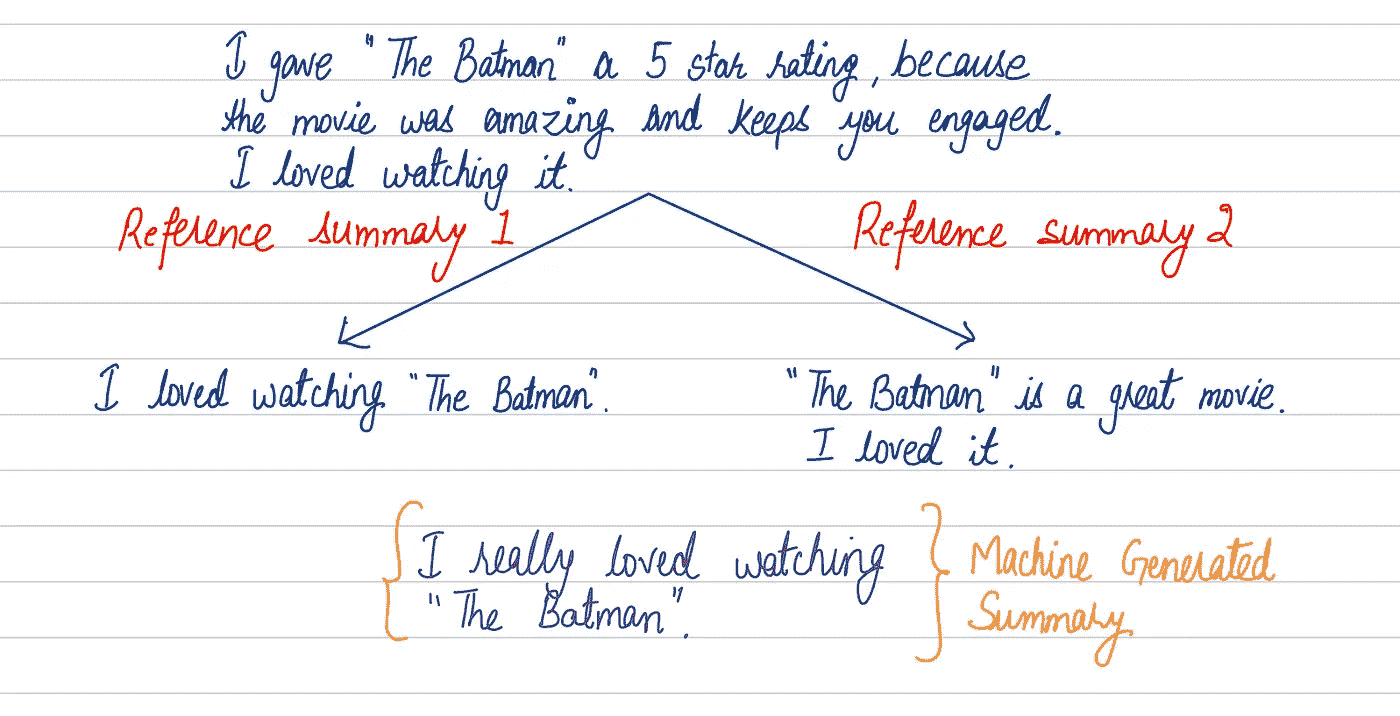 I gave "The Batman" a 5 star rating, because
the movie was amazing and keeps you engaged.
I loved watching it.
Reference summary 1
Reference summary 2
I loved watching "The Batman".
"The Batman" is a great movie.
I loved it.
I really loved watching
"The Batman".
Machine Generated
Summary